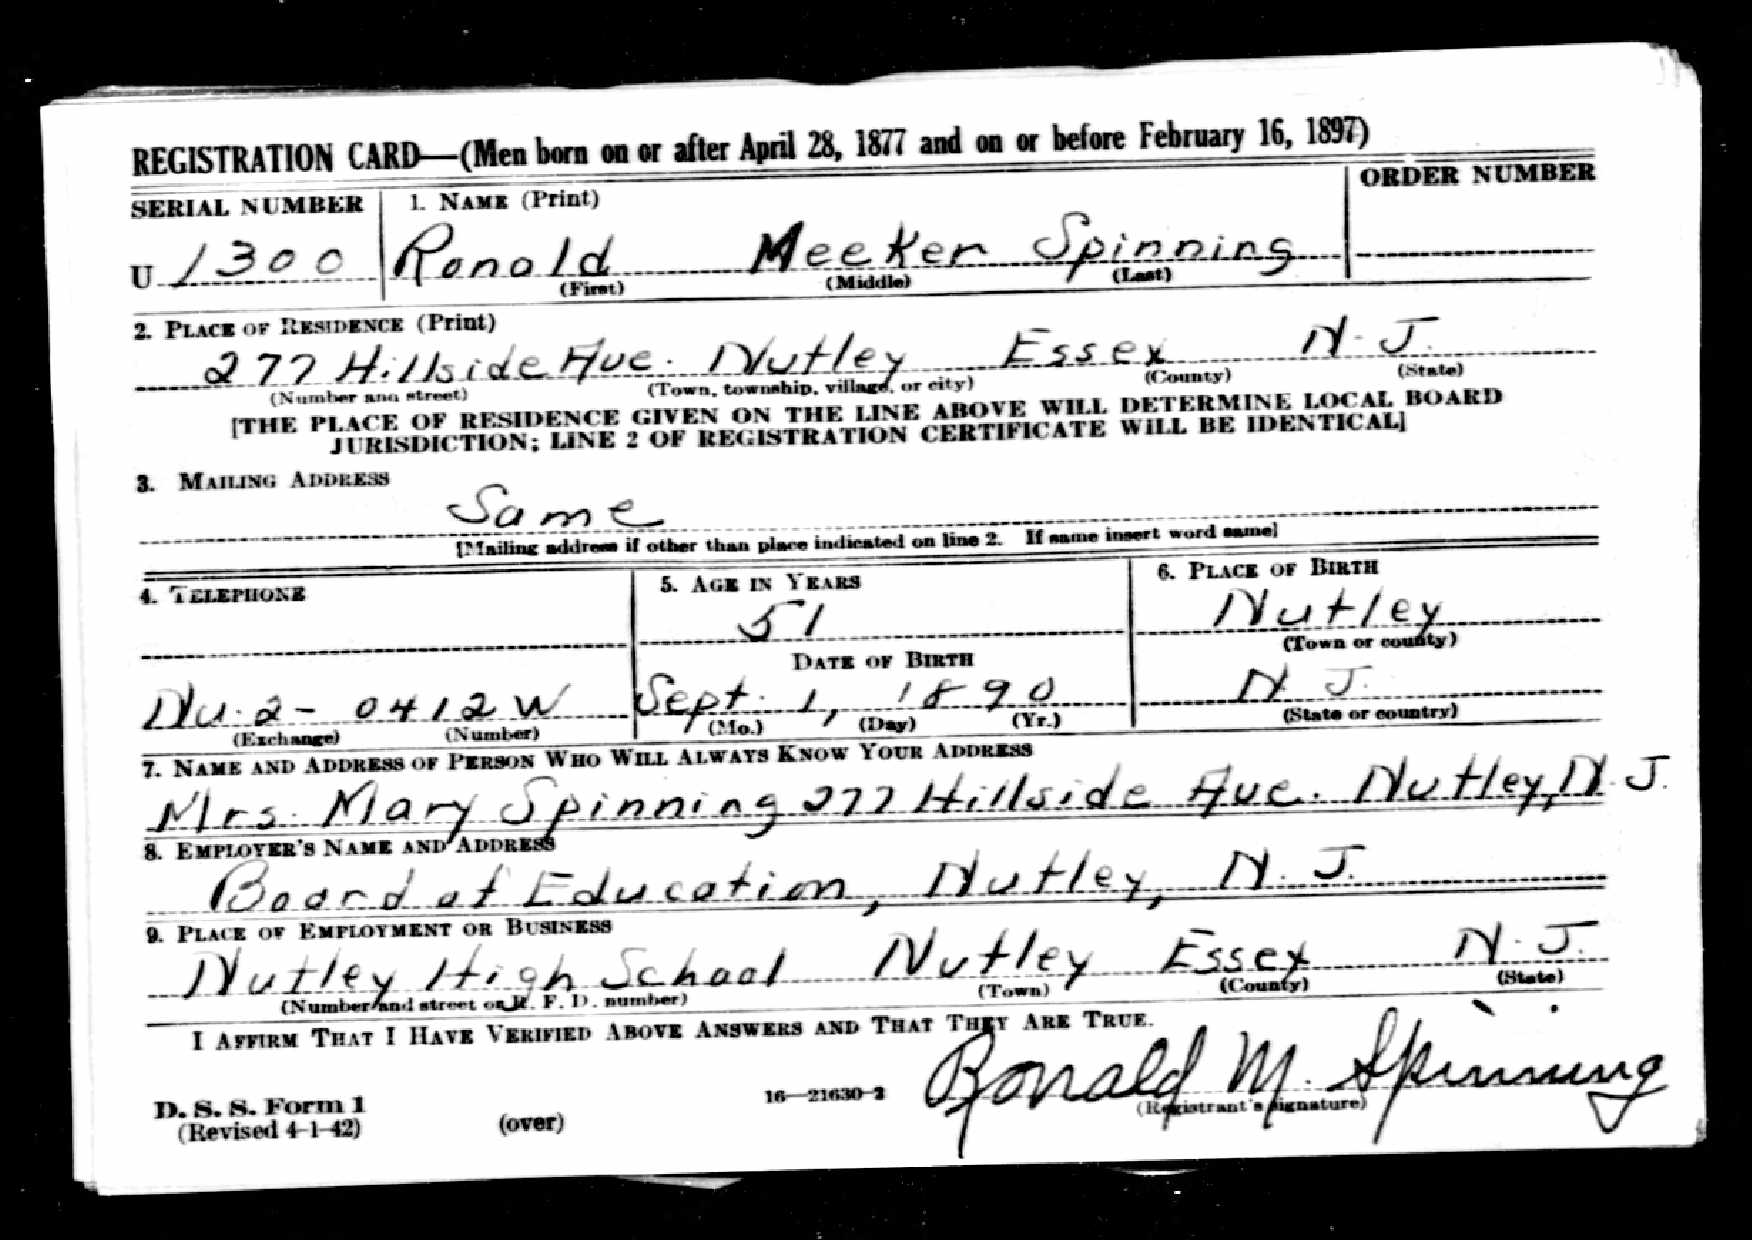 REGISTRATION CARD—(Men born on or after April 28, 1877 and on or before February 16, 1897)
SERIAL NUMBER 1. NAME (Print) ORDER NUMBER
U 1300 Ronald Meeker Spinning
(First) (Middle) (Last)
2. PLACE OF RESIDENCE (Print)
277 Hillside Ave. Nutley Essex N. J.
(Number and street) (Town, township, village, or city) (County) (State)
[THE PLACE OF RESIDENCE GIVEN ON THE LINE ABOVE WILL DETERMINE LOCAL BOARD
JURISDICTION; LINE 2 OF REGISTRATION CERTIFICATE WILL BE IDENTICAL]
3. MAILING ADDRESS
Same
[Mailing address if other than place indicated on line 2. If same insert word same]
4. TELEPHONE 5. AGE IN YEARS 6. PLACE OF BIRTH
51 Nutley
(Town or county)
DATE OF BIRTH
Nu. 2- 0412W Sept. 1, 1890 N. J.
(Exchange) (Number) (Mo.) (Day) (Yr.) (State or country)
7. NAME AND ADDRESS OF PERSON WHO WILL ALWAYS KNOW YOUR ADDRESS
Mrs. Mary Spinning 277 Hillside Ave. Nutley, N. J.
8. EMPLOYER'S NAME AND ADDRESS
Board of Education, Nutley, N. J.
9. PLACE OF EMPLOYMENT OR BUSINESS
Nutley High School Nutley Essex N. J.
(Number and street or R. F. D. number) (Town) (County) (State)
I AFFIRM THAT I HAVE VERIFIED ABOVE ANSWERS AND THAT THEY ARE TRUE.
Ronald M. Spinning
D. S. S. Form 1 16—21630-2 (Registrant's signature)
(Revised 4-1-42) (over)